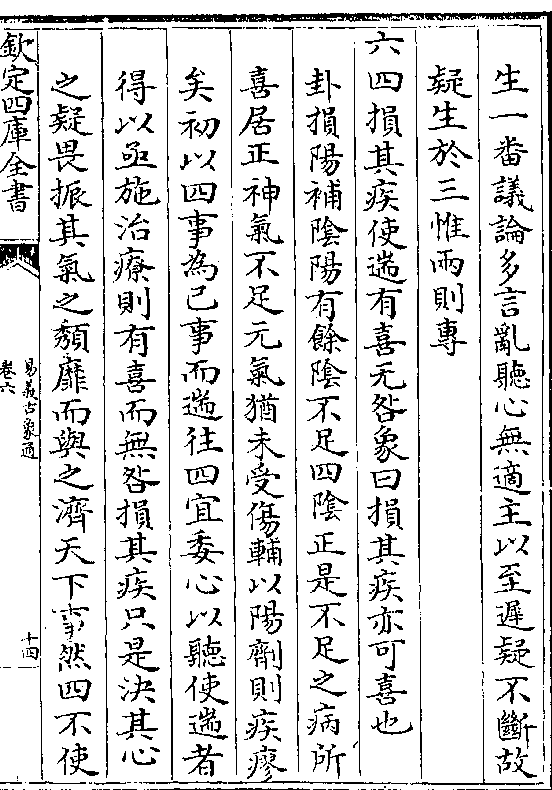 生一番議論多言亂聽心無適主以至遲疑不斷故
疑生於三惟兩則專
六四損其疾使遄有喜无咎象曰損其疾亦可喜也
卦損陽補陰陽有餘陰不足四陰正是不足之病所
喜居正神氣不足元氣猶未受傷輔以陽劑則疾瘳
矣初以四事為己事而遄往四宜委心以聽使遄者
得以亟施治療則有喜而無咎損其疾只是決其心
之疑畏振其氣之頹靡而與之濟天下事然四不使
欽定四庫全書
易義古象通
卷六
十四